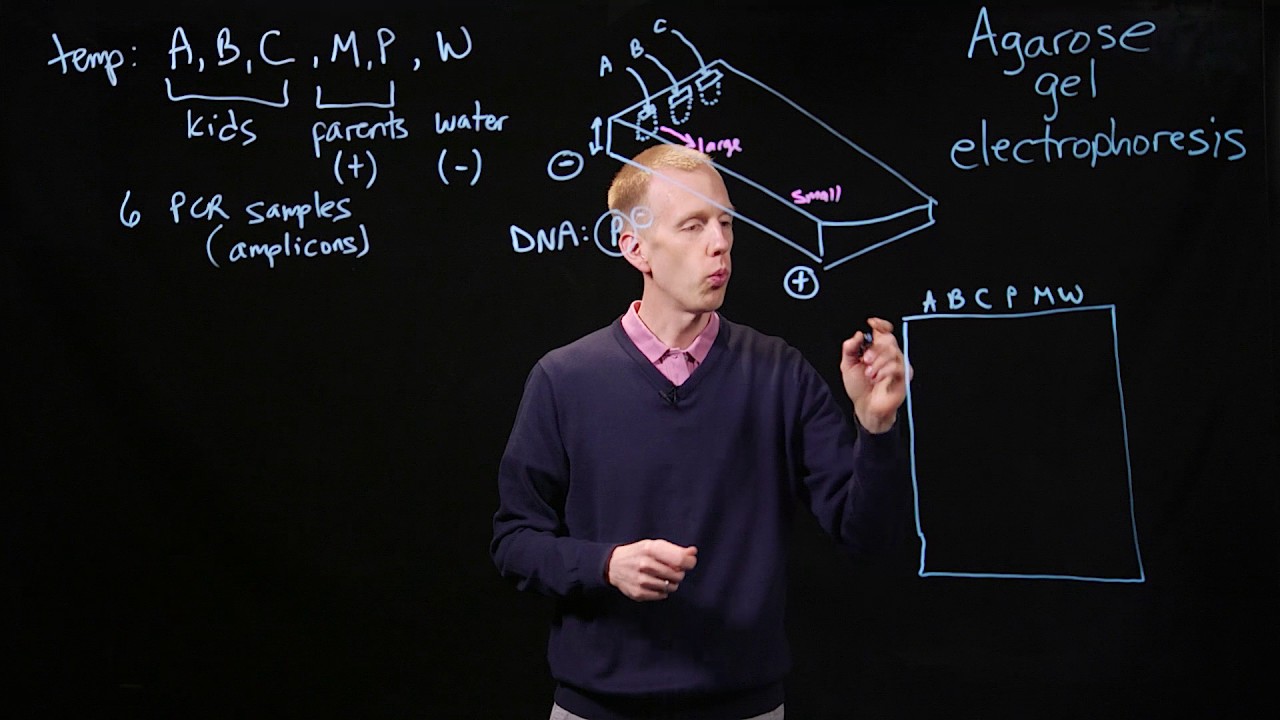 temp: A, B, C, M, P, W
kids
parents
water
(+)
(-)
6 PCR samples
(amplicons)
A
B
C
large
small
-
DNA: P -
+
Agarose
gel
electrophoresis
A B C P M W